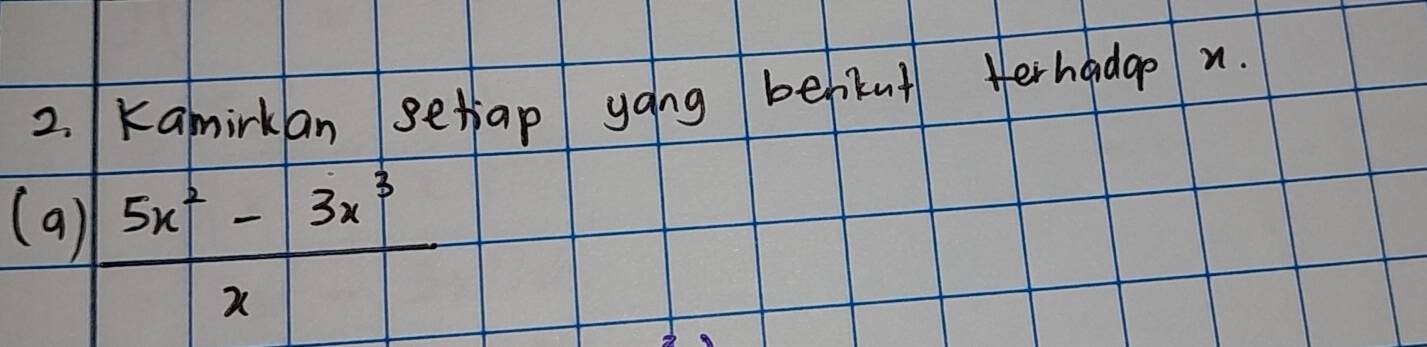 2. Kamirkan setiap yang berikut terhadap x.
(a) 5x² - 3x³
x